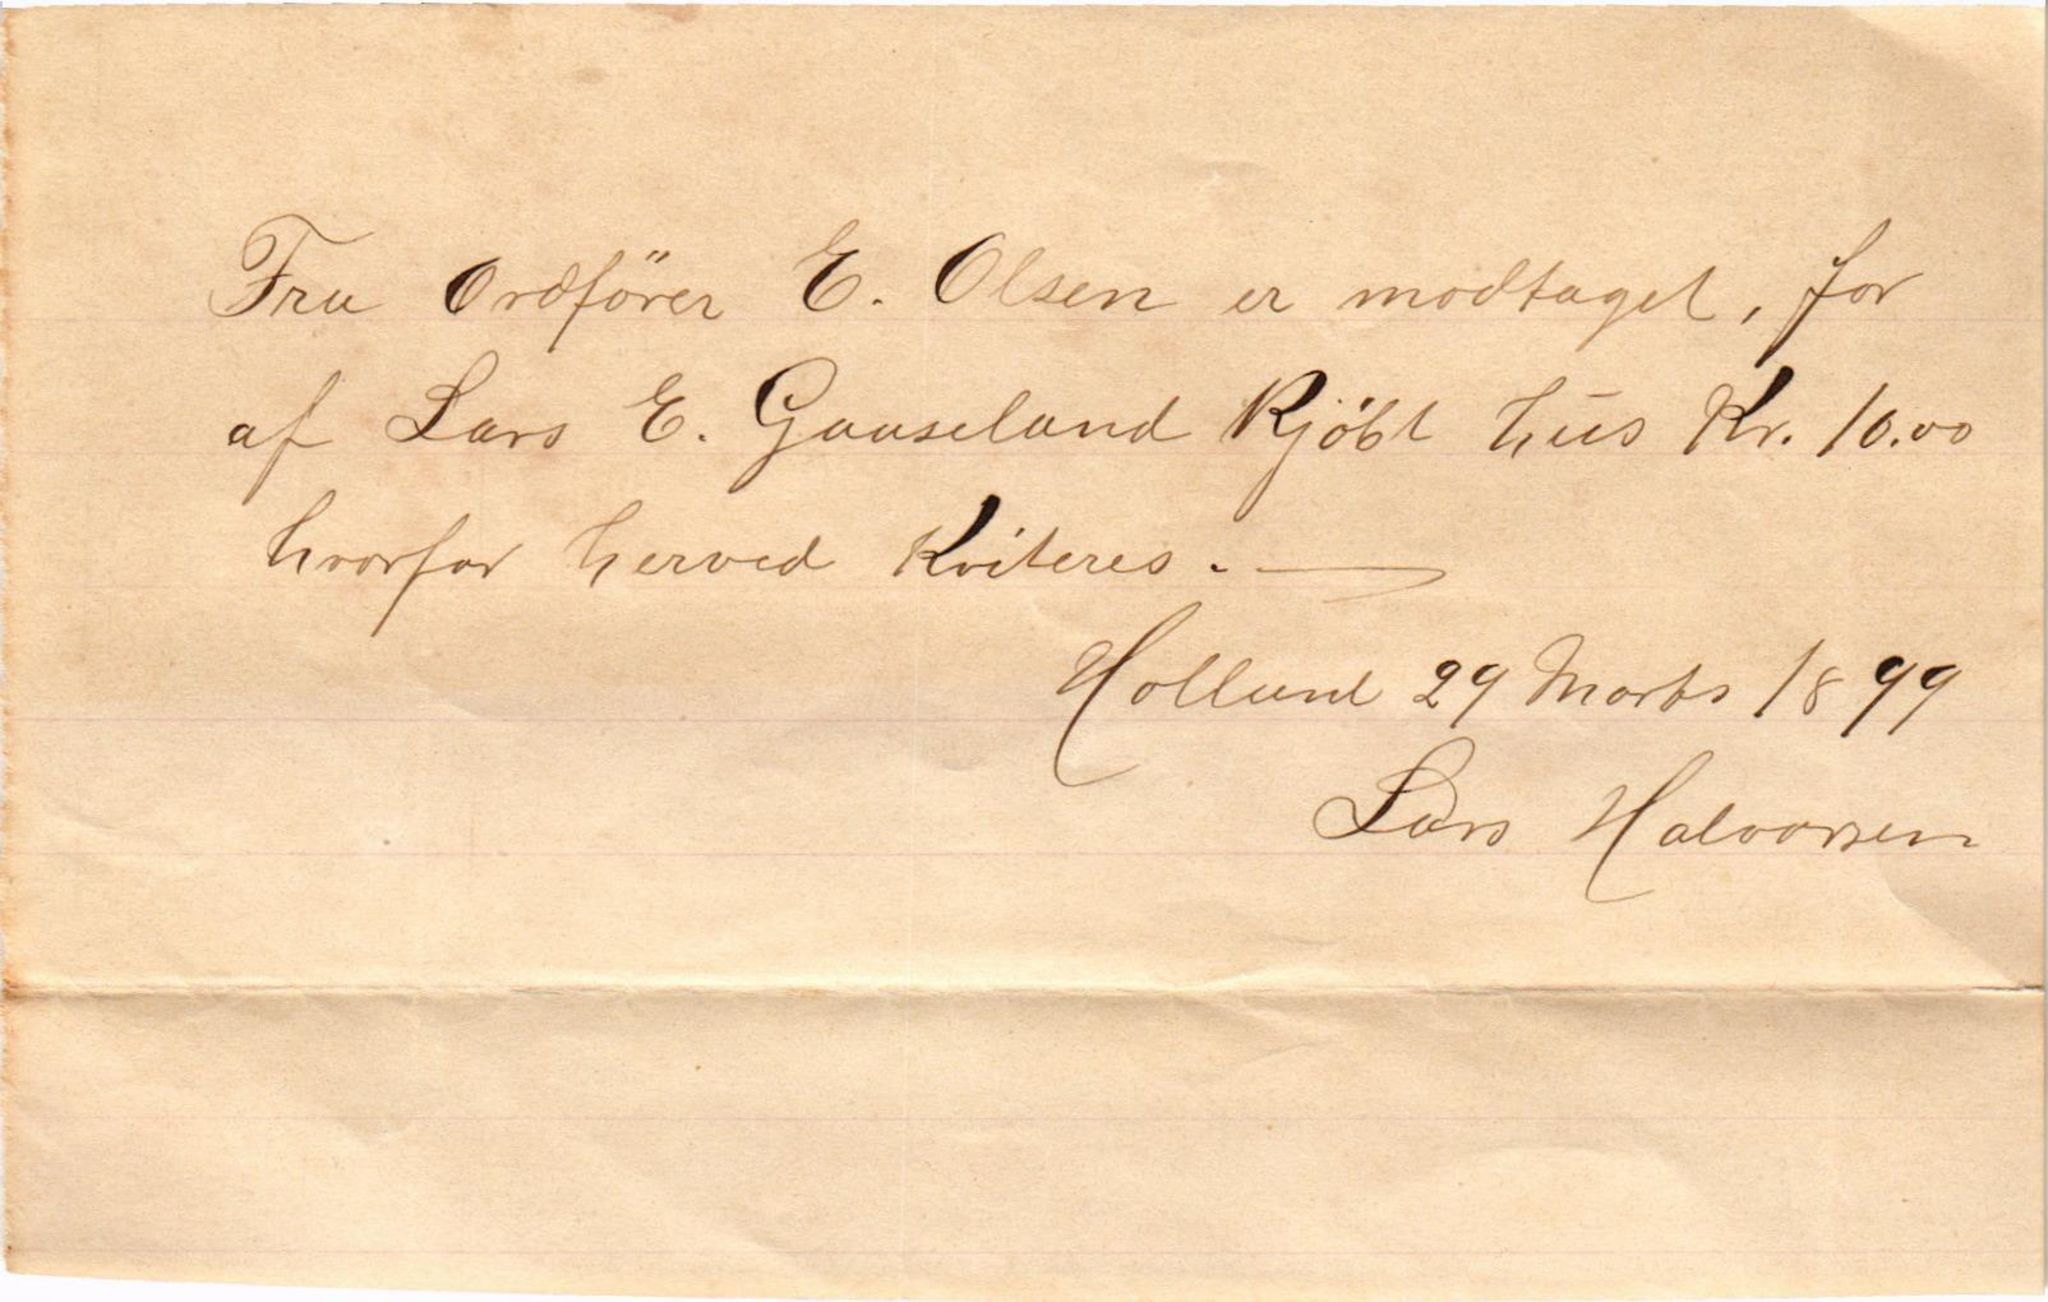 Fra Ordförer E. Olsen er modtaget, for
af Lars E. Gaaseland Kjöbt hus Kr. 10.00
hvorfor herved Kviteres. —
Hollund 29 Marts 1899
Lars Halvorsen